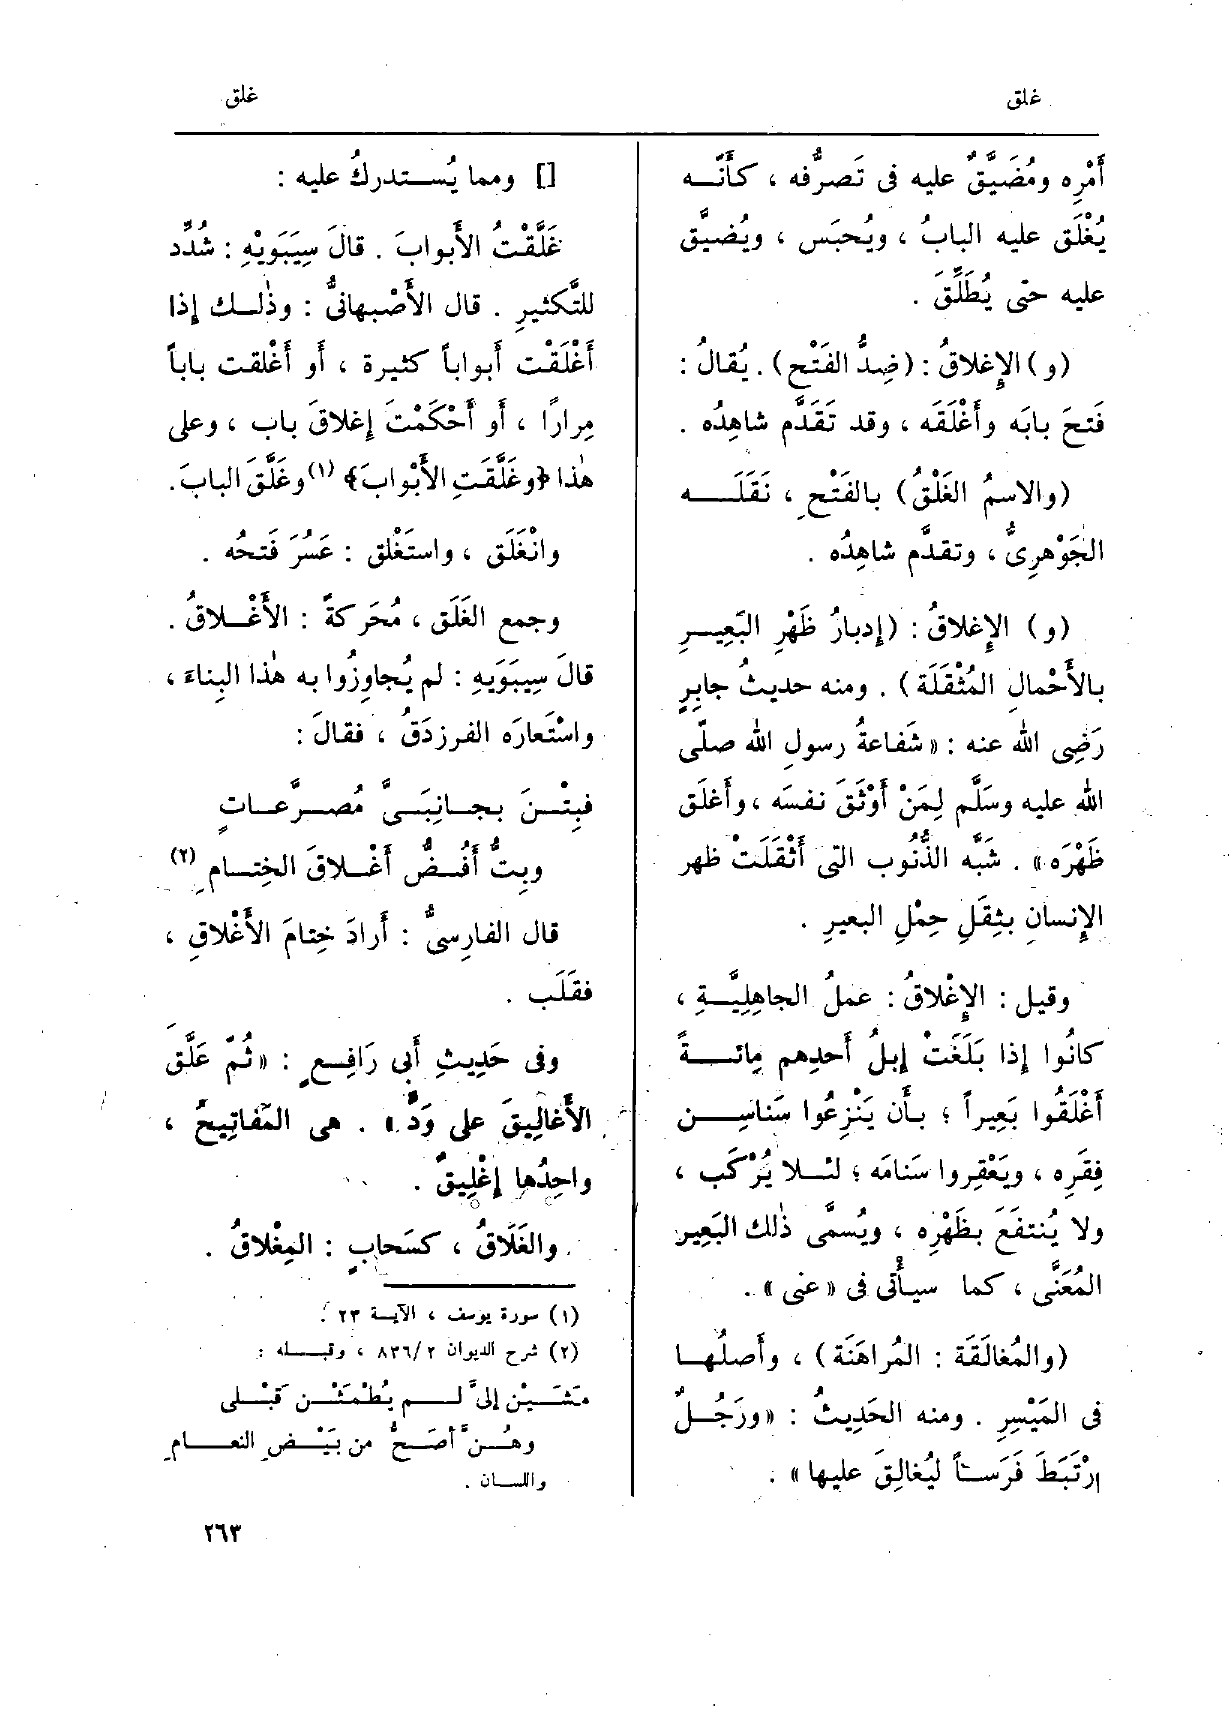 غلق
غلق
أَمْرِه ومُضَيَّقٌ عليه فى تَصرُّفه ، كأَنَّـه
يُغْلَق عليه البابُ ، ويُحبَس ، ويُضيَّق
عليه حتى يُطَلِّقَ .
(و) الإِغلاقُ : (ضِدُّ الفَتْح) . يُقالُ :
فَتحَ بابَه وأَغْلَقَه ، وقد تَقَدَّم شاهِدُه .
(والاسمُ الغَلْقُ) بالفَتْحِ ، نَقَلَـه
الجَوْهرِىُّ ، وتقدَّم شاهِدُه .
(و) الإِغلاقُ : (إِدبارُ ظَهْرِ البَعِيـرِ
بالأَحْمالِ المُثْقَلَة) . ومنه حديثُ جابِرٍ
رَضِى الله عنه : « شَفاعةُ رسولِ الله صلَّى
الله عليه وسَلَّم لِمَنْ أَوْثَقَ نفسَه ، وأَغلَق
ظَهْرَه » . شَبَّه الذُّنُوب التى أَثْقَلَتْ ظهر
الإِنسانِ بثِقَلِ حِمْلِ البعيرِ .
وقيل : الإِغْلاقُ : عملُ الجاهِلِيَّـةِ ،
كانُوا إِذا بَلَغَتْ إِبلُ أَحدِهم مِائـةً
أَغْلَقُوا بَعِيراً ؛ بـأَن يَنْزِعُوا سَناسِـن
فِقَرِه ، ويَعْقِروا سَنامَه ؛ لئـلا يُرْكَب ،
ولا يُنتفَعَ بظَهْرِه ، ويُسمَّى ذٰلك البَعِير
المُعَنَّى ، كما سيأْتى فى « عنى » .
(والمُغالَقَة : المُراهَنَة) ، وأَصلُهـا
فى المَيْسِرِ . ومنه الحَدِيثُ : « ورَجُـلٌ
ارْتَبَطَ فَرَسـاً ليُغالِقَ عليها » .
[] ومما يُستدركُ عليه :
غَلَّقْتُ الأَبوابَ . قالَ سِيَبَوَيْهِ : شُدِّد
للتَّكثيرِ . قال الأَصْبهانىُّ : وذٰلـك إِذا
أَغْلَقْت أَبواباً كثيرة ، أَو أَغْلقت باباً
مِرارًا ، أَو أَحْكَمْتَ إِغلاقَ باب ، وعلى
هٰذا ﴿وغَلَّقَتِ الأَبْوابَ﴾ (١) وغَلَّقَ البابَ .
وانْغَلَق ، واستَغْلق : عَسُرَ فَتحُه .
وجمع الغَلَق ، مُحَركةً : الأَغْـلاقُ .
قالَ سِيبَوَيهِ : لم يُجاوِزُوا به هٰذا البِناءَ ،
واسْتَعارَه الفرزدَقُ ، فقالَ :
فبِتْـنَ بجـانِبَـىَّ مُصـرَّعـاتٍ
وبِتُّ أَفُـضُّ أَغْـلاقَ الخِتـامِ (٢)
قال الفارِسىُّ : أَرادَ خِتامَ الأَغْلاقِ ،
فقَلَب .
وفى حَدِيثِ أَبى رَافِعٍ : « ثُمّ عَلَّقَ
الأَغالِيقَ على وَدٍّ » . هى المَفاتِيحُ ،
واحِدُها إِغْلِيقٌ .
والغَلَاقُ ، كسَحابٍ : المِغْلاقُ .
(١) سورة يوسف ، الآيـة ٢٣ .
(٢) شرح الديوان ٨٣٦/٢ ، وقبـله :
مَشَيْن إلىَّ لـم يُطْمَثْـن قَبْـلى
وهُـنَّ أصَـحُّ من بَيْـضِ النعـام
واللسـان .
٢٦٣